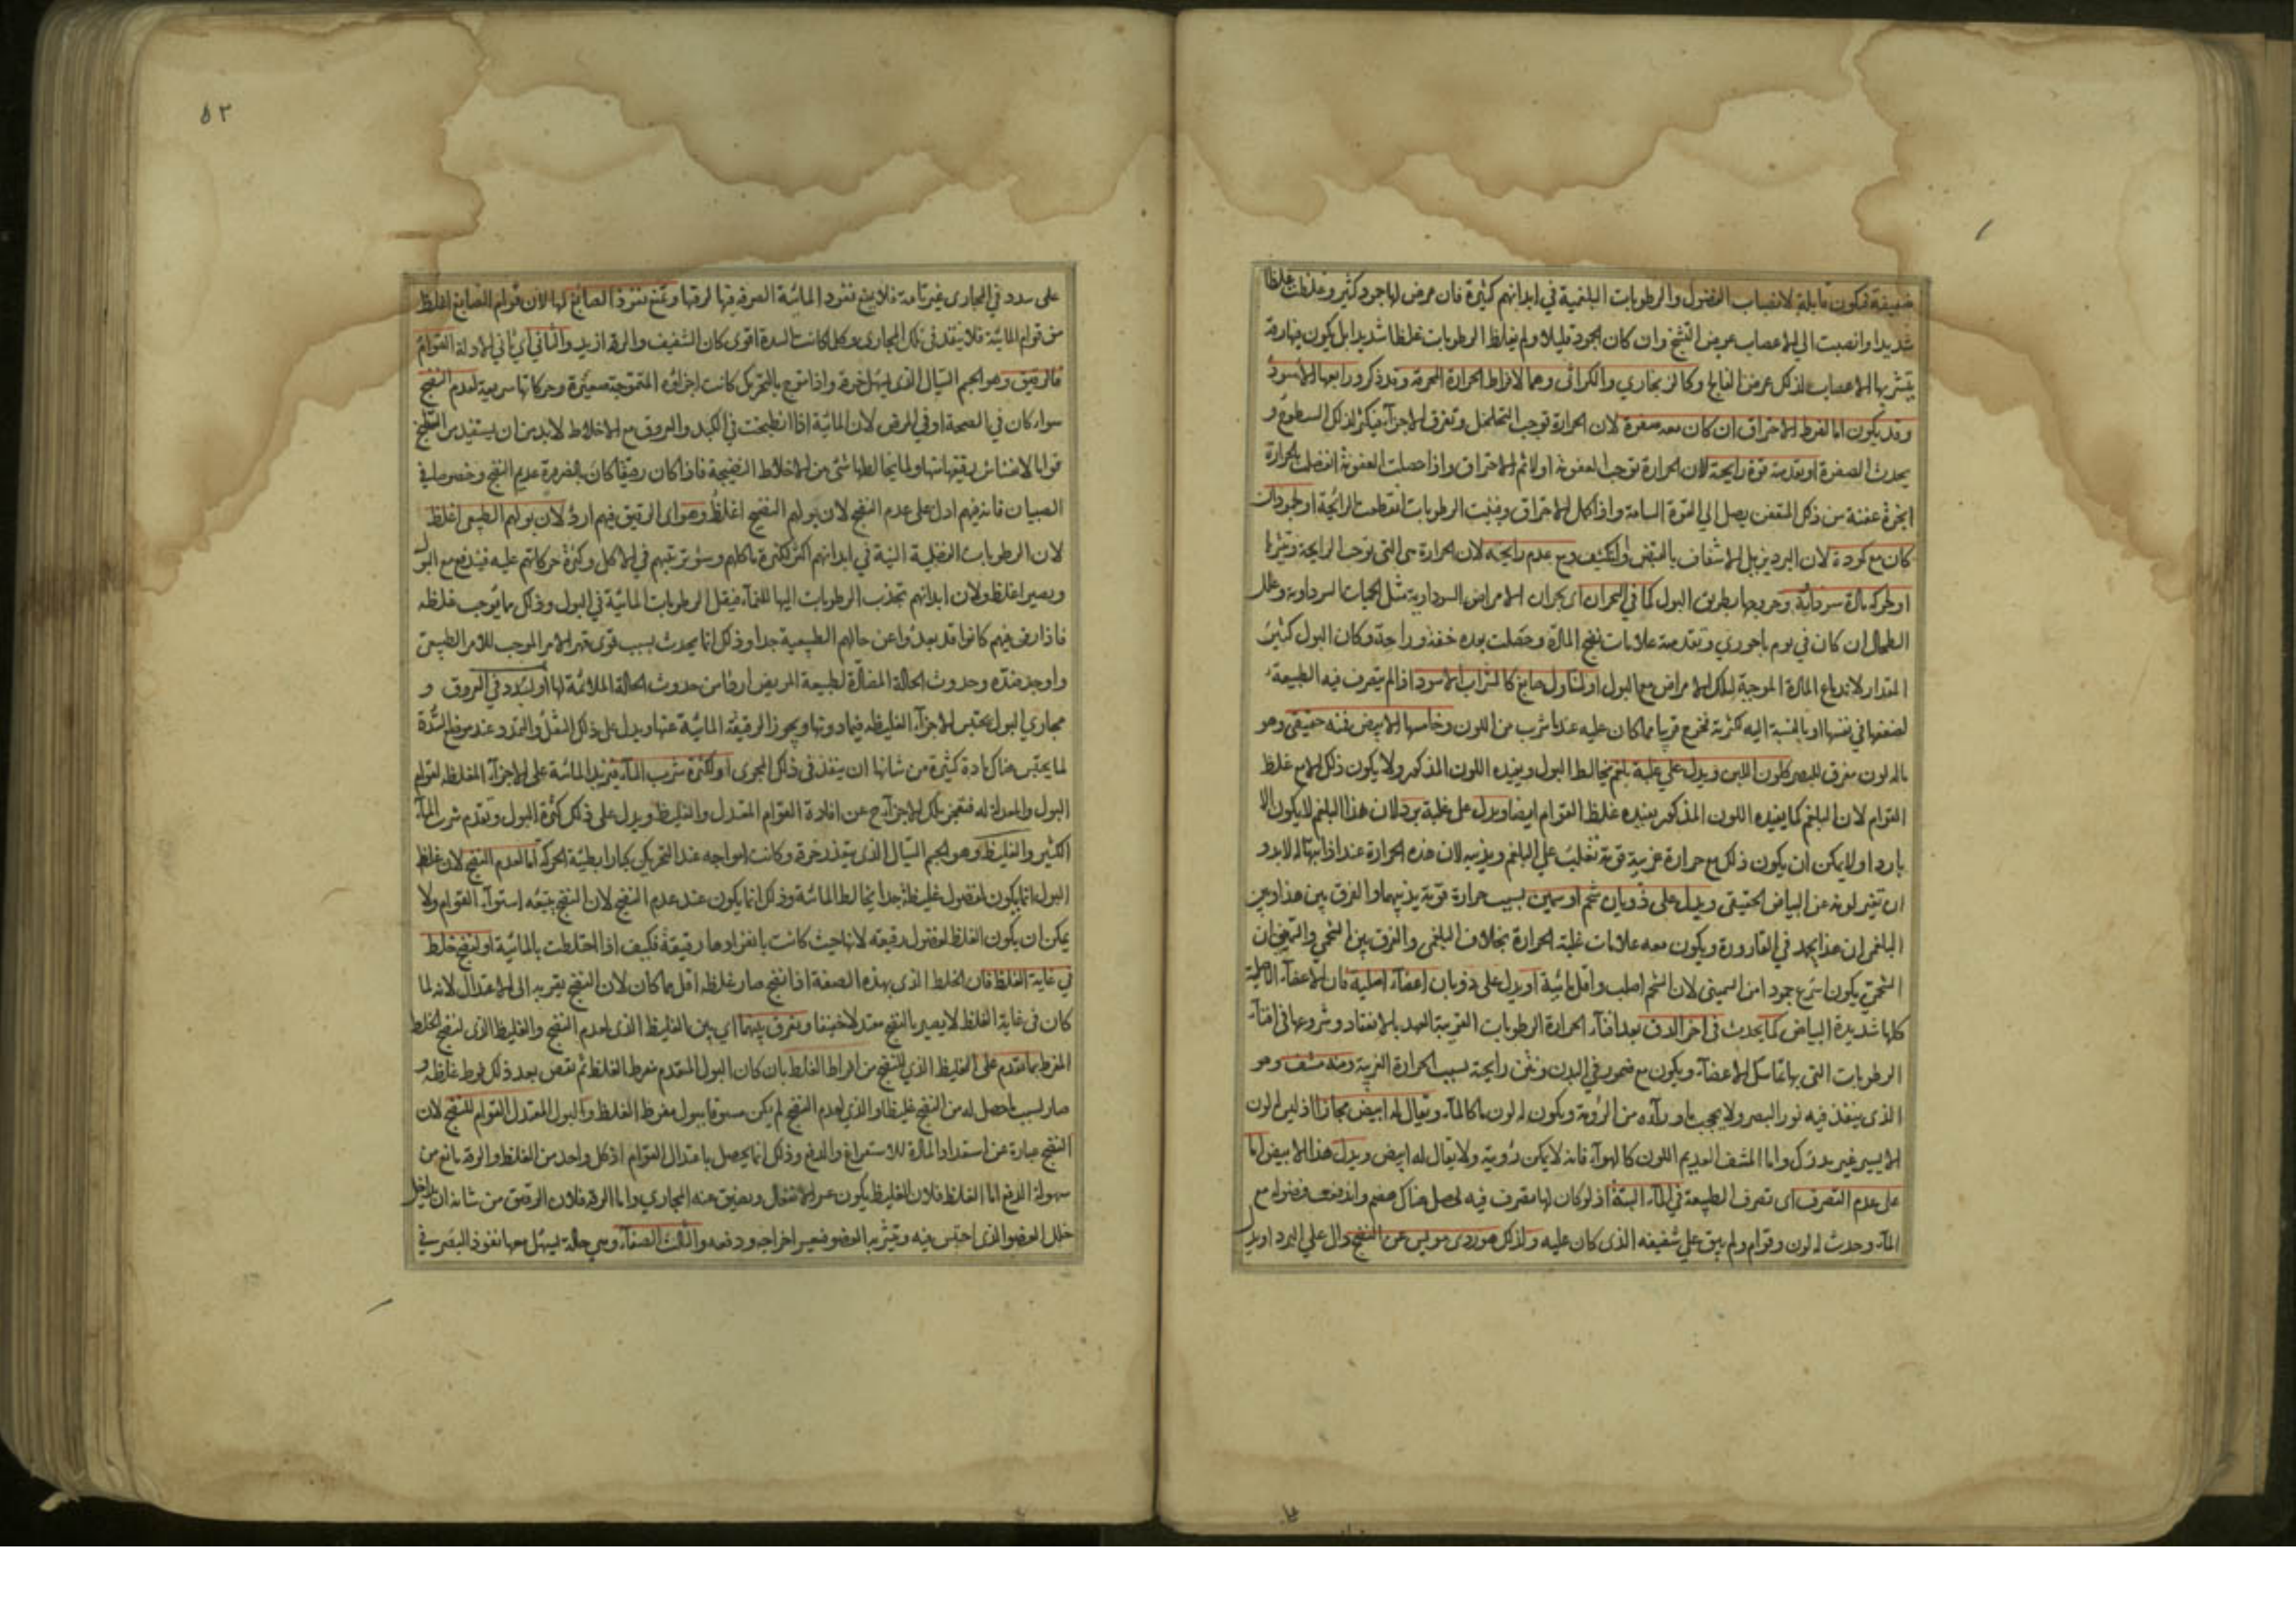 ضعيفة فيكون قابلة لانصباب الفضول والرطوبات البلغمية في ابدانهم كثيرة فان عرض لها جود كثير وغلظت غلظا
شديدا وانصبت الي الاعصاب عرض التشنج وان كان الجود قليلا ولم يغلظ الرطوبات غلظا شديدا بل يكون بهارقة
يتشربها الاعصاب لذلك عرض الفالج وكالزنجاري والكراثي وهما لافراط الحرارة المحرقة وقد ذكر ورابعها الاسود
وقد يكون اما لفرط الاحتراق ان كان معه صفرة لان الحرارة توجب التخلخل وتفرق الاجزآء فيكثر لذلك السطوع و
يحدث الصفرة او تقدمته قوة رايحة لان الحرارة توجب العفونة اولا ثم الاحتراق واذا حصلت العفونة انفصلت بالحرارة
ابخرة عفنة من ذلك المتعفن يصل الي القوة الشامة واذا كمل الاحتراق وفنيت الرطوبات انقطعت الرائحة او لجود ان
كان مع كودة لان البرد يزيل الاشفاف بالقبض والتكثيف ومع عدم رايحة لان الحرارة هي التي توجب الرايحة وتثيرها
او لحركة مادة سوداية وخروجها بطريق البول كما في البحران اي بحران الامراض السوداوية مثل الحميات السوداوية وعلل
الطحال ان كان في يوم باحوري وتقدمته علامات نضج المادة وحصلت بعده خفة وراحة وكان البول كثير
المقدار لاندفاع المادة الموجبة لتلك الامراض مع البول او لتناول صابغ كالشراب الاسود اذا لم يتصرف فيه الطبيعة
لضعفها في نفسها او بالنسبة اليه لكثرته فخرج قريبا مما كان عليه عند ما شرب من اللون وخامسها الابيض فمنه حقيقي وهو
ماله لون مفرق للبصر كلون اللبن ويدل علي غلبة بلغم يخالط البول ويفيده اللون المذكور ولا يكون ذلك الا مع غلظ
القوام لان البلغم كما يفيده اللون المذكور يفيده غلظ القوام ايضا ويدل على غلبة برد لان هذا البلغم لا يكون الا
باردا ولا يمكن ان يكون ذلك مع حرارة غريبة قوية تغلب علي البلغم ويذيبه لان هذه الحرارة عند اذابتها له لا بد و
ان تغير لونه عن البياض الحقيقي ويدل على ذوبان شحم او سمين بسبب حرارة قوية يذيبهما والفرق بين هذا وبين
البلغمي ان هذا يجمد في القارورة ويكون معه علامات غلبة الحرارة بخلاف البلغمي والفرق بين الشحمي والسمين ان
الشحمي يكون اسرع جمودا من السميني لان الشحم اصلب واقل مائية او يدل على ذوبان اعضآء اصلية فان الاعضآء الاصلية
كلها شديدة البياض كما يحدث في اخر الدق بعد افنآء الحرارة الرطوبات القريبة العهد بالانعقاد وشروعها في افنآء
الرطوبات التي بها تماسك الاعضآء ويكون مع ضمور في البدن ونتن رايحة بسبب الحرارة الغريبة ومنه مشف وهو
الذي ينفذ فيه نور البصر ولا يحجب ما ورآءه من الرؤية ويكون له لون ما كالمآء ويقال له ابيض مجازا اذ ليس له لون
الا يسير غير مدرك واما المشف العديم اللون كالهوآء فانه لا يمكن رؤيته ولا يقال له ابيض ويدل هذا الابيض اما
على عدم التصرف اي تصرف الطبيعة في المآء البتة اذ لو كان لها تصرف فيه لحصل هناك هضم واندفعت فضوله مع
المآء وحدث له لون وقوام ولم يبق علي شفيفه الذي كان عليه ولذلك هو ردي مويس عن النضج دال علي البرد او يدل
٥٣
على سدد في المجاري غير تامة فلا يمنع نفوذ المائية الصرفة فيها لرقتها وتمنع نفوذ الصابغ لها لان قوام الصابغ اغلظ
من قوام المائية فلا ينفذ في تلك المجاري وكلما كانت السدة اقوى كان الشفيف والرقة ازيد والثاني اي ثاني الادلة القوام
فالرقيق وهو الجسم السيال الذي يسهل خرقه واذا تموج بالتحريك كانت اجزاؤه المتموجة صغيرة وحركاتها سريعة لعدم النضج
سواء كان في الصحة او في المرض لان المائية اذا انطبخت في الكبد والعروق مع الاخلاط لا بد من ان يستفيد من الطبخ
قواما لانفشاش رقيقها منها ولما يخالطها شئ من الاخلاط النضيجة فاذا كان رقيقا كان بالضرورة عديم النضج وخصوصا في
الصبيان فانه فيهم ادل على عدم النضج لان بولهم النضيج اغلظ وهو اي الرقيق فيهم اردئ لان بولهم الطبيعي اغلظ
لان الرطوبات الفضلية النية في ابدانهم اكثر لكثرة ماكلهم وسوء ترتيبهم في الاكل وكثرة حركاتهم عليه فيندفع مع البول
ويصير اغلظ ولان ابدانهم تجذب الرطوبات اليها للنمآء فيقل الرطوبات المائية في البول وذلك مما يوجب غلظه
فاذا رق فيهم كانوا قد بعدوا عن حالهم الطبيعية جدا وذلك انما يحدث بسبب قوي قهر الامر الموجب للامر الطبيعي
واوجد ضده وحدوث الحالة المضادة لطبيعة المريض اردا من حدوث الحالة الملائمة لها او لسدد في العروق و
مجاري البول يحتبس الاجزآء الغليظة فيما دونها ويجوز الرقيقة المائية عنها ويدل على ذلك الثقل والتمدد عند موضع السدة
لما يحتبس هناك مادة كثيرة من شانها ان ينفذ في ذلك المجرى او لكثرة شرب المآء فيزيد المائية على الاجزآء المغلظة لقوام
البول والمعدلة له فتعجز تلك الاجزآء ح عن افادة القوام المعتدل والغليظ ويدل على ذلك كثرة البول وتقدم شرب المآء
الكثير والغليظ وهو الجسم السيال الذي يتعذر خرقه وكانت امواجه عند التحريك كبارا بطيئة الحركة اما لعدم النضج لان غلظ
البول انما يكون لفضول غليظة جدا يخالط المائية وذلك انما يكون عند عدم النضج لان النضج يتبعه استوآء القوام ولا
يمكن ان يكون الغلظ لفضول رقيقة لانها حيث كانت بانفرادها رقيقة فكيف اذا اختلطت بالمائية او لنضج خلط
في غاية الغلظ فان الخلط الذي بهذه الصفة اذا نضج صار غلظه اقل مما كان لان النضج يقربه الى الاعتدال لانه لما
كان في غاية الغلظ لا يصير بالنضج معتدلا خفيفا ويفرق بينهما اي بين الغليظ الذي لعدم النضج والغليظ الذي لنضج الخلط
المفرط بما تقدم على الغليظ الذي للنضج من افراط الغلظ بان كان البول المتقدم مفرط الغلظ ثم نقص بعد ذلك فرط غلظه و
صار بسبب ما حصل له من النضج غليظا والذي لعدم النضج لم يكن مسبوقا ببول مفرط الغلظ والبول المعتدل القوام للنضج لان
النضج عبارة عن استعداد المادة للاستفراغ والدفع وذلك انما يحصل باعتدال القوام اذ كل واحد من الغلظ والرقة مانع من
سهولة الدفع اما الغلظ فلان الغليظ يكون عسر الانتقال ويضيق عنه المجاري واما الرقة فلان الرقيق من شانه ان يداخل
خلل العضو الذي احتبس فيه ويتشربه العضو فيعسر اخراجه ودفعه والثالث الصفآء وهي حالة يسهل معها نفوذ البصر في